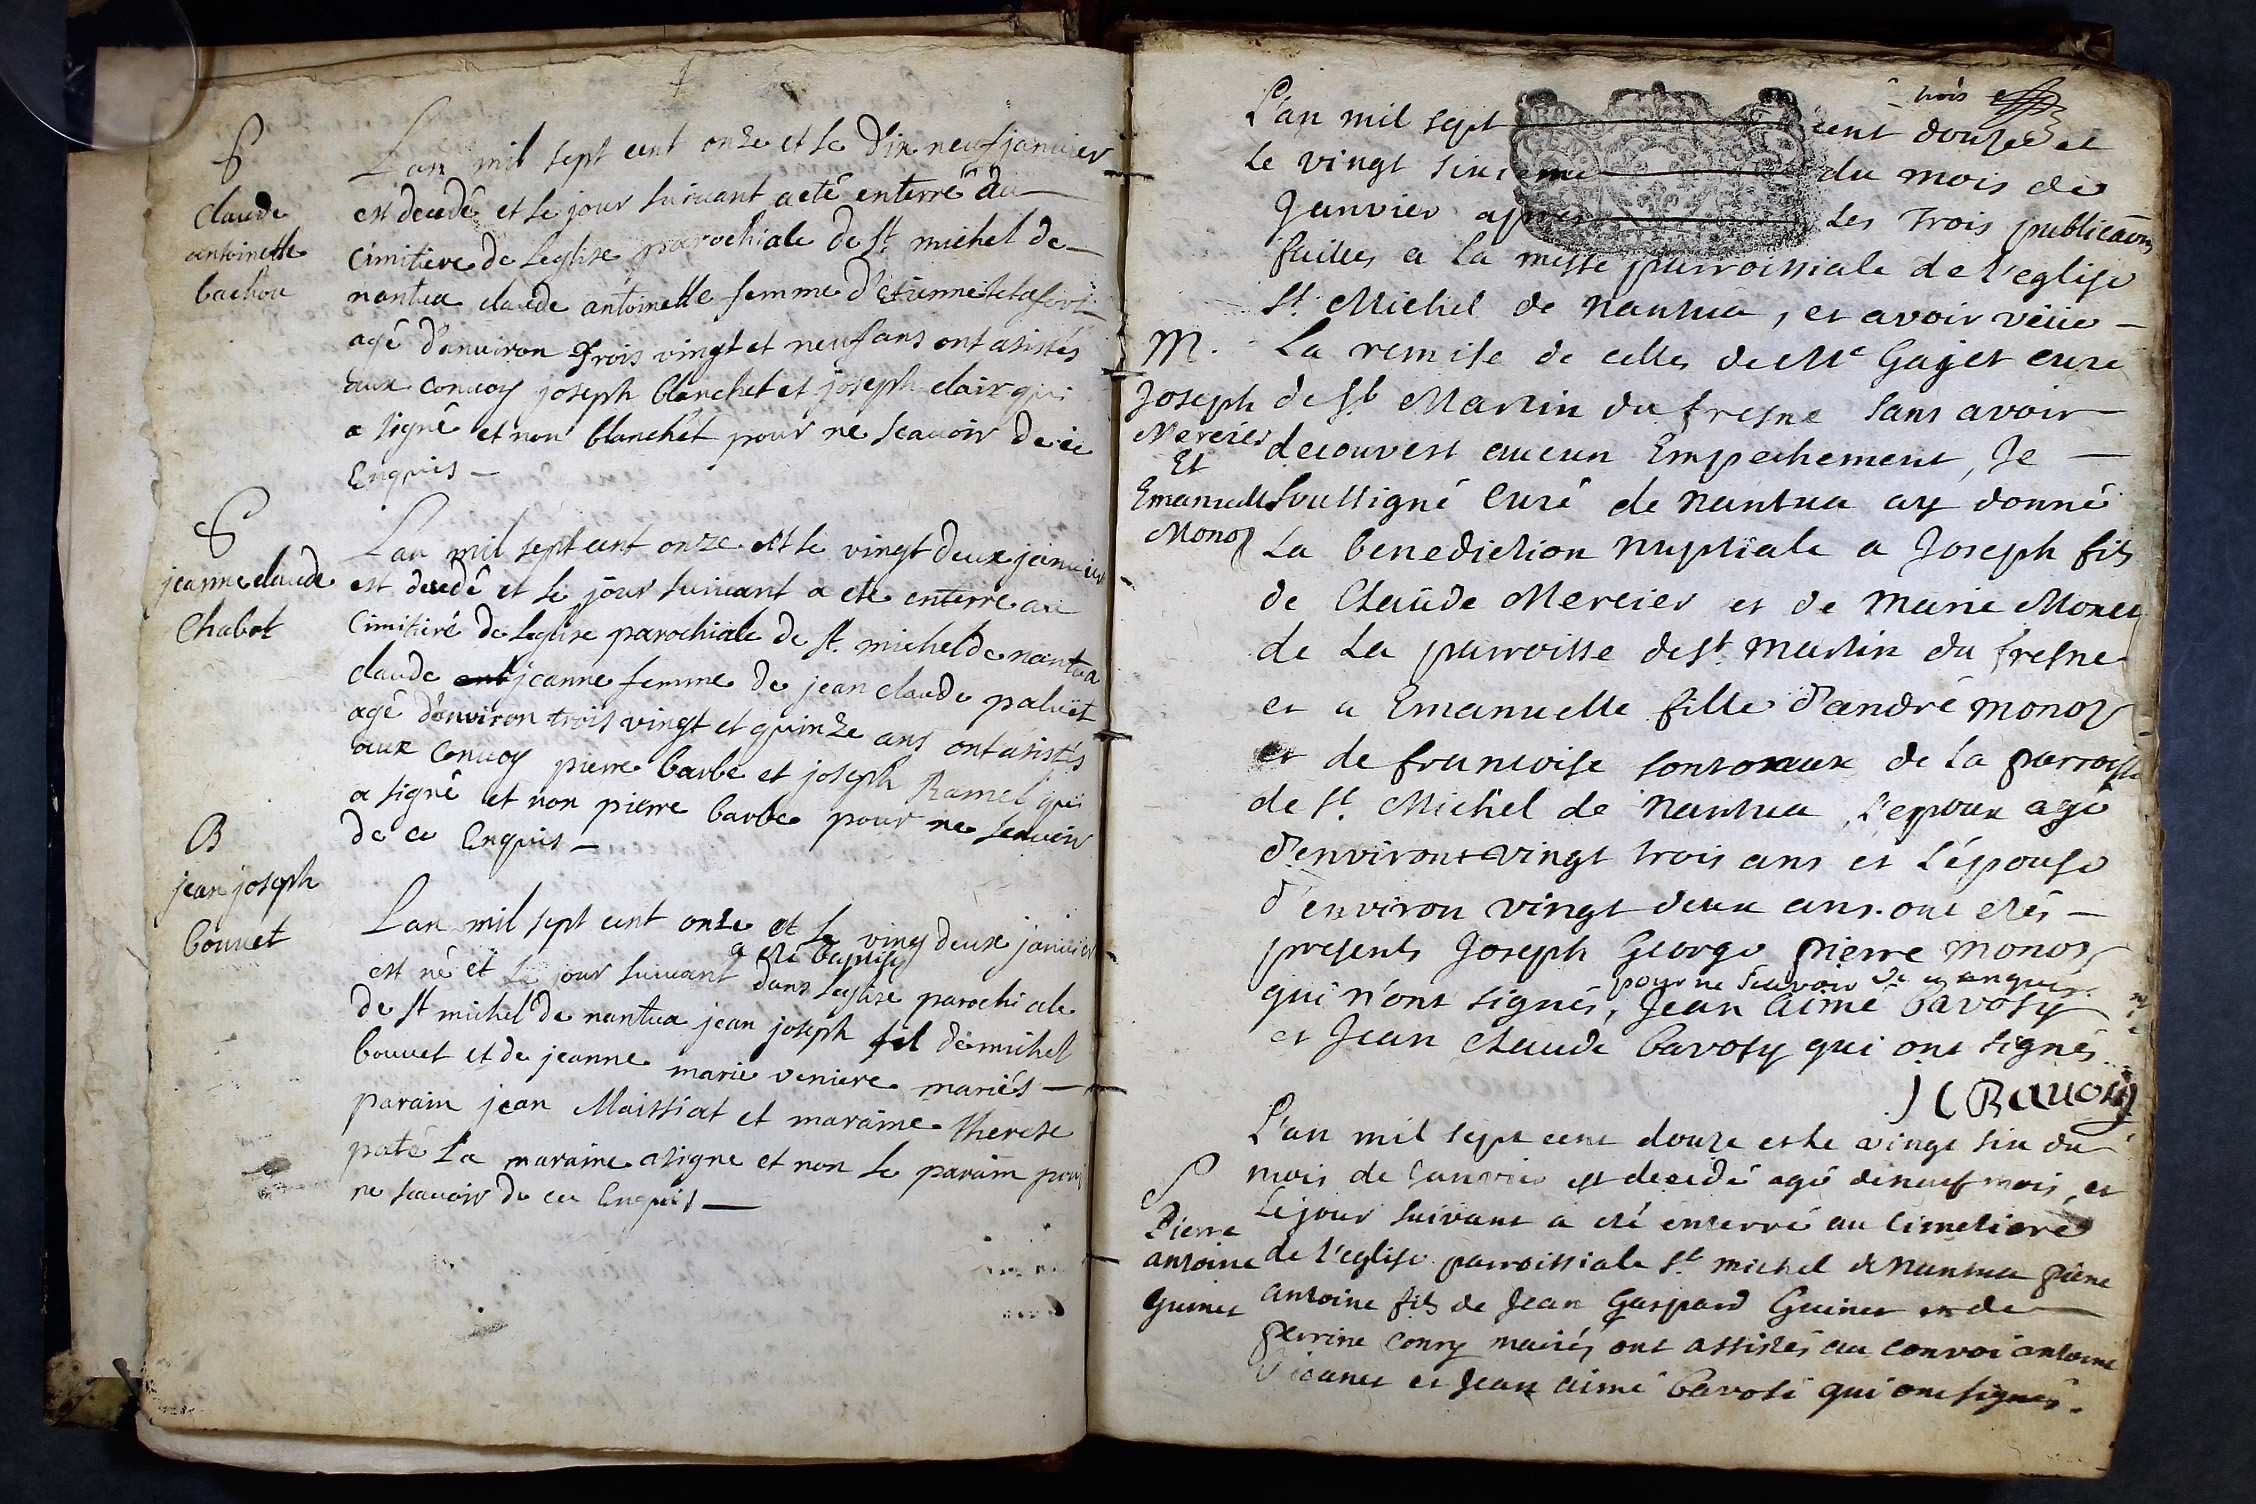 S
Claude
antoinette
bachou
Lan mil sept cent onze et le dix neuf janvier
est decedé et le jour suivant a eté enterré au
Cimitiere de Leglise parochiale de St michel de
nantua claude antoinette femme d'etienne
agé d'anviron trois vingt et neuf ans ont asistés
aux convoy joseph blanchet et joseph clair qui
a signé et non blanchet pour ne scavoir de ce
Enquis
S
jeanne claude
Chabot
Lan mil sept cent onze et le vingt deux janvier
est decedé et le jour suivant a ete enterre au
Cimitieré de Leglise parochiale de St. michel de nantua
claude jeanne femme de jean claude paluët
agé d'environ trois vingt et quinze ans ont asistés
aux convoy pierre barbe et joseph Ramel qui
a signé et non pierre barbe pour ne scavoir
de ce Enquis
B
jean joseph
bouvet
Lan mil sept cent onze et le ving deux janvier
est né et le jour suivant a ete baptise dans Leglise parochiale
de St michel de nantua jean joseph fil de michel
bouvet et de jeanne marie veniere mariés
parain jean Maissiat et maraine therese
paté La maraine a signe et non le parain pour
ne scavoir de ce Enquis
trois
L'an mil sept cent douze et
Le vingt sixieme du mois de
Janvier apres Les trois publicaōns
faittes a La messe parroissiale de l'eglise
St. Michel de Nantua, et avoir veüe
M.
Joseph
Mercier
Et
Emanuelle
Monoz
La remise de celles de Mc Gajet curé
de St Martin du fresne sans avoir
decouvert aucun Empechement, Je
soussigné Curé de Nantua ay donné
La benediction Nuptiale a Joseph fils
de Claüde Mercier et de Marie Monet
de La parroisse de St. Martin du fresne
et a Emanuelle fille d'andré monoz
et de francoise de La parroisse
de St. Michel de Nantua, L'epoux agé
d'environt vingt trois ans et L'épouse
d'environ vingt deux ans. ont etés
presents Joseph George pierre monoz
pour ne scavoir de ce enquis
qui n'ont signés, Jean Aimé Bavosy
et Jean Claude bavosy qui ont signés
J C Bavozy
L'an mil sept cent douze et Le vingt six du
mois de Janvier est decedé agé de neuf mois, et
S
Pierre
antoine
Guinet
Le jour suivant a eté enterré au Cimetiere
de l'eglise parroissiale St. michel de Nantua pierre
antoine fils de Jean Gaspard Guinet et de
perrine Cony mariés ont assistés au convoi antoine
et Jean aimé bavosi qui ont signés.